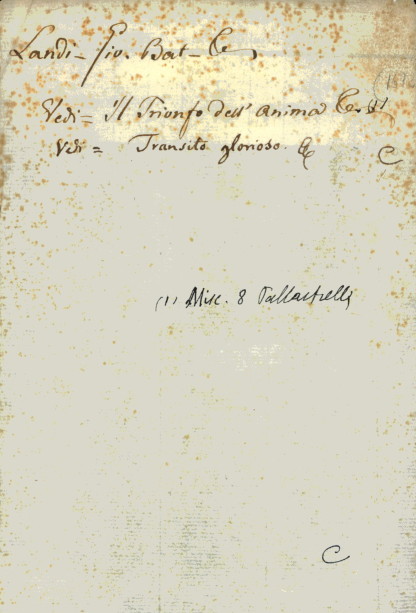 Landi = Gio. Bat =
Vedi = il Trionfo dell' anima &c. (1)
Vedi = Transito glorioso. &
C
(1) Misc. 8 Pallastrelli
C